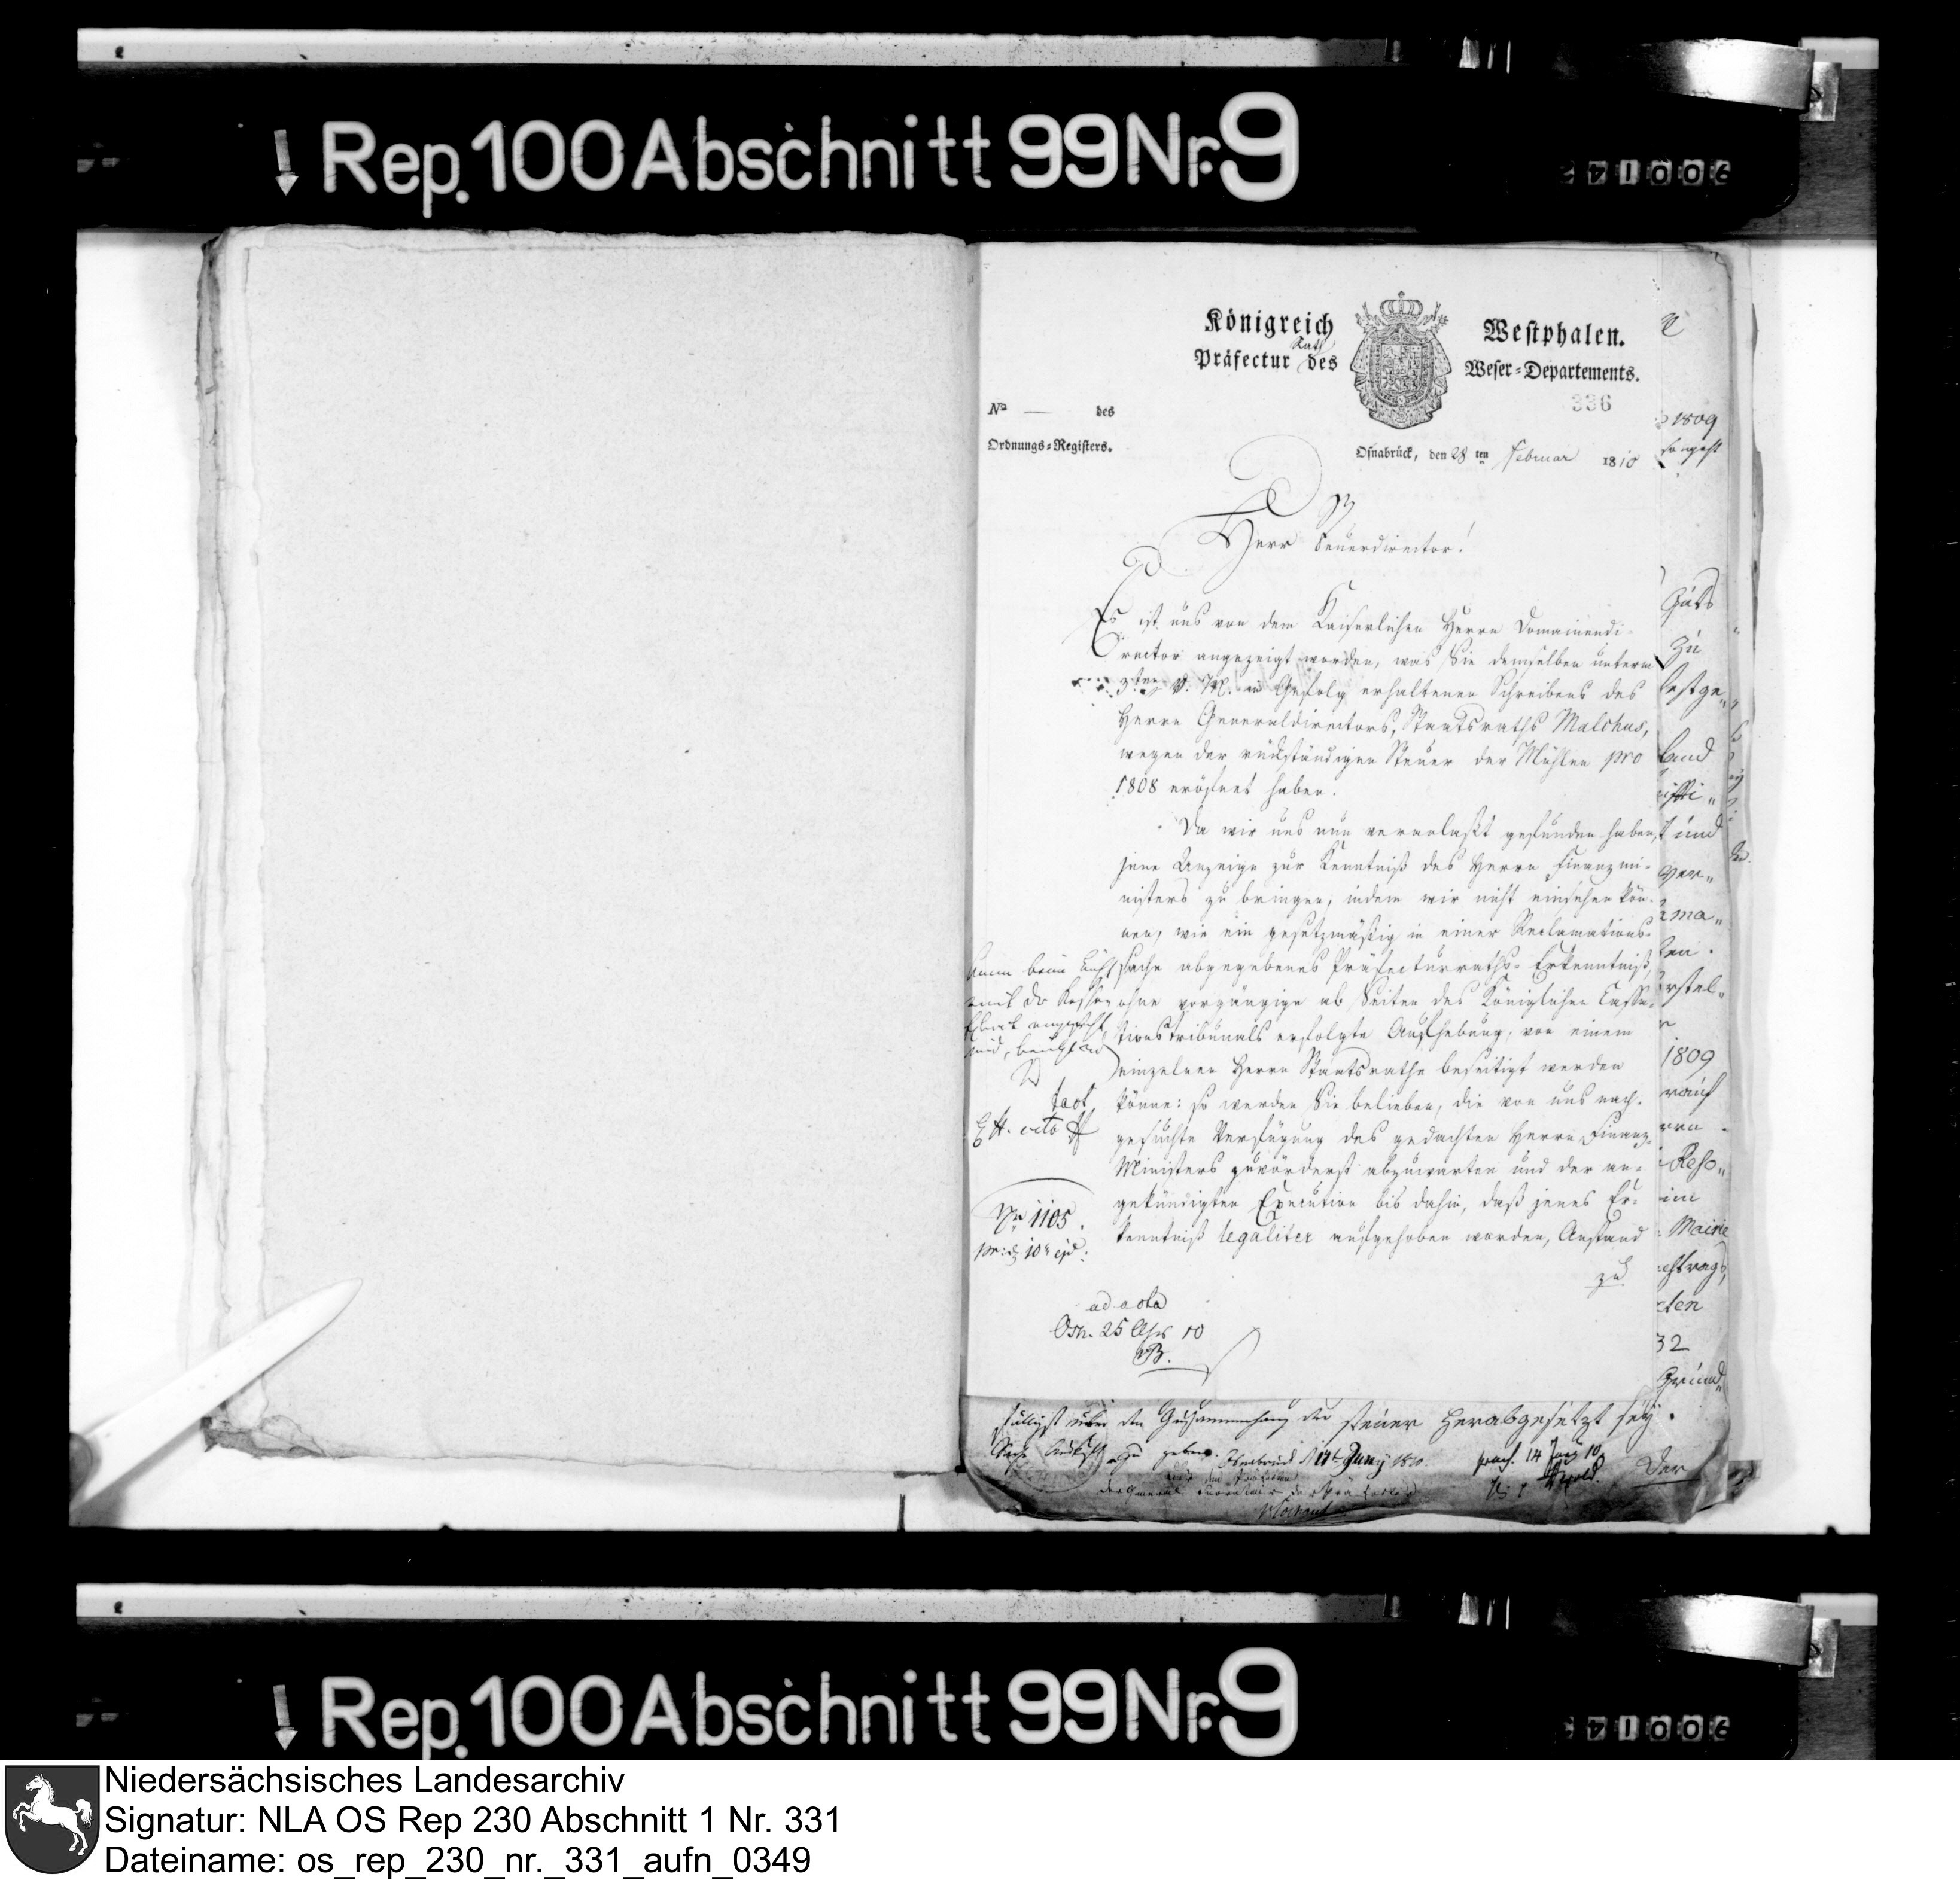 Rep. 100 Abschnitt 99 Nr. 9
Königreich Westphalen.
Präfectur Rath des Weser-Departements.
336
No — des
Ordnungs-Registers.
Osnabrück, den 28 ten Februar 1810
Herr Steuerdirector!
Es ist uns von dem Kaiserlichen Herrn Domainendi-
rector angezeigt worden, was Sie demselben unterm
3ten v. M. in Gefolg erhaltenen Schreibens des
Herrn Generaldirectors, Staatsraths Malchus,
wegen der rückständigen Steuer der Mühlen pro
1808 eröfnet haben.
Da wir uns nun veranlaßt gefunden haben,
jene Anzeige zur Kenntniß des Herrn Finanzmi-
nisters zu bringen, indem wir nicht einsehen kön-
nen, wie ein gesetzmäßig in einer Reclamations-
sache abgegebenes Präfecturraths-Erkenntniß,
ohne vorgängige ab Seiten des Königlichen Cassa-
tionstribunals erfolgte Aufhebung, von einem
einzelnen Herrn Staatsrathe beseitigt werden
könne: so werden Sie belieben, die von uns nach-
gesuchte Verfügung des gedachten Herrn Finanz-
Ministers zuvörderst abzuwarten und der an-
gekündigten Execution bis dahin, daß jenes Er-
kenntniß legaliter aufgehoben worden, Anstand
zu
No 1105.
ad acta
Osn. 25 10
B.
1809
Guts
zu
festge„
und
ver„
1809
Reso„
Mairie
32
Grund„
über den Zusammenhang der
steuer herabgesetzt sey.
Sache zu geben. Osnabrück Juny 1810.
praes. 14 Juny 10
Der
Rep. 100 Abschnitt 99 Nr. 9
Niedersächsisches Landesarchiv
Signatur: NLA OS Rep 230 Abschnitt 1 Nr. 331
Dateiname: os_rep_230_nr._331_aufn_0349